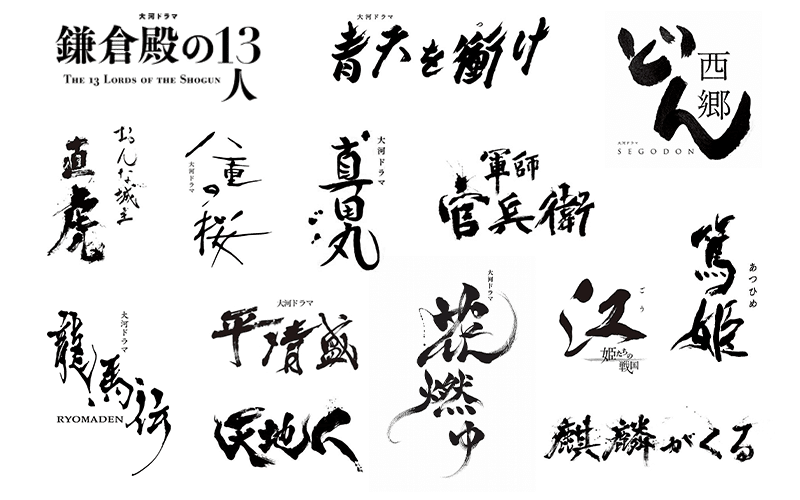 大河ドラマ
鎌倉殿の13人
THE 13 LORDS OF THE SHOGUN
大河ドラマ
青天を衝け
つ
西郷どん
大河ドラマ
SEGODON
おんな城主
直虎
八重の桜
大河ドラマ
大河ドラマ
真田丸
軍師
官兵衛
篤姫
あつひめ
大河ドラマ
龍馬伝
RYOMADEN
大河ドラマ
平清盛
天地人
大河ドラマ
花燃ゆ
江
ごう
姫たちの
戦国
麒麟がくる